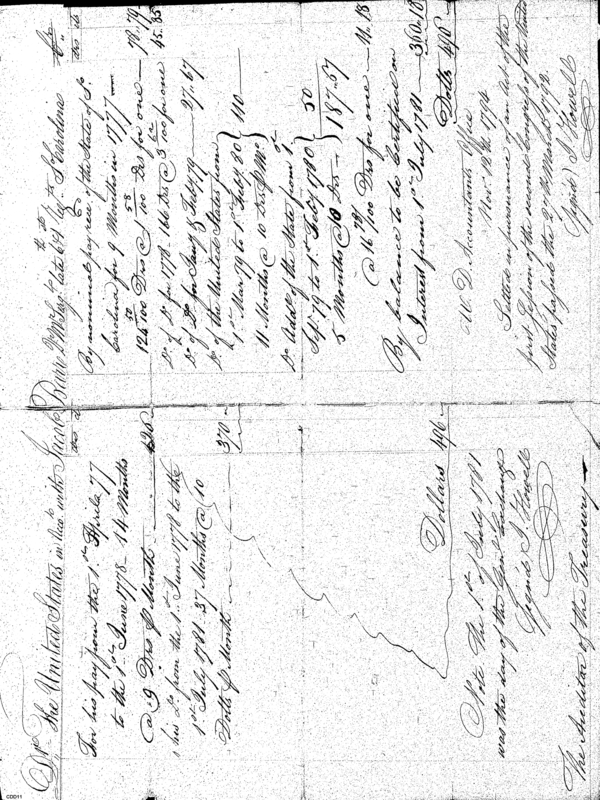 Dr. The United States in Acct. with Jacob
Drs. ds.
For his pay from the 1st. Aprile 77
to the 1st June 1778 - 14 Months
@ 9 Drs ⅌ Month 126
his Do. from the 1st. June 1778 to the
1st July 1781 - 37 Months @ 10
Dolls ⅌ Month 370
Dollars 496
Note the 1st of July 1781
was the day of the Genl.
Signd. J. Howell
The Auditor of the Treasury
late 6th Regt. So. Carolina Cr.
Drs. ds.
By nominal pay recd. of the State of So.
Carolina for 9 Months in 1777
@ 100 Drs for one 78.79
Do. of Do. for 1778. 166 Drs @ 100 for one 45.35
Do. of Do. for Jany & Feby 79 27.67
Do. of the United States from
1st. Mar. 79 to 1st Feby 80
11 Months @ 10 Drs ⅌ Mo. 110
Do. Addl. of the State from 1st
Sept. 79 to 1st Feby 1780 50
5 Months @ 10 Drs 187.57
@ 100 Drs for one
By balance to be Certified on
Interest from 1st July 1781
Dolls 496
W. D. Accountants Office
Novr.
Settled in pursuance of an Act of the
first Session of the second Congress of the United
States passed the 27th March 1792.
(Signd) J. Howell
CDD11